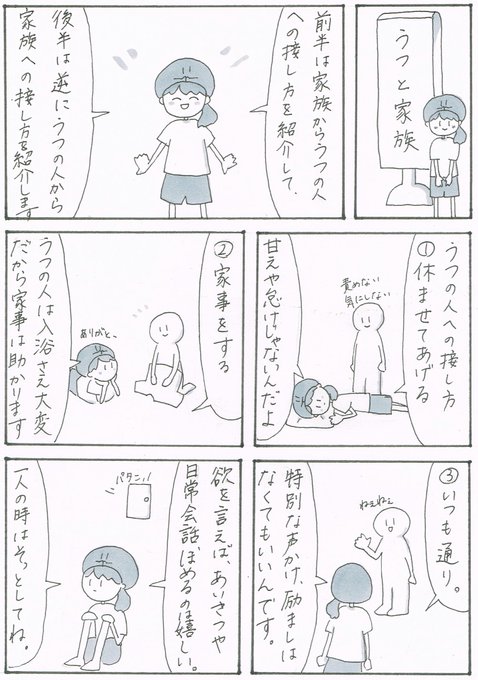 うつと家族
前半は家族からうつの人
への接し方を紹介して、
後半は逆にうつの人から
家族への接し方を紹介します
うつの人への接し方
①休ませてあげる
責めない
気にしない
甘えや怠けじゃないんだよ
②家事をする
ありがと〜
うつの人は入浴さえ大変
だから家事は助かります
③いつも通り。
ねぇねぇ
特別な声かけ、励ましは
なくてもいいんです。
欲を言えば、あいさつや
日常会話、ほめるのは嬉しい。
パタン!!
一人の時はそっとしてね。